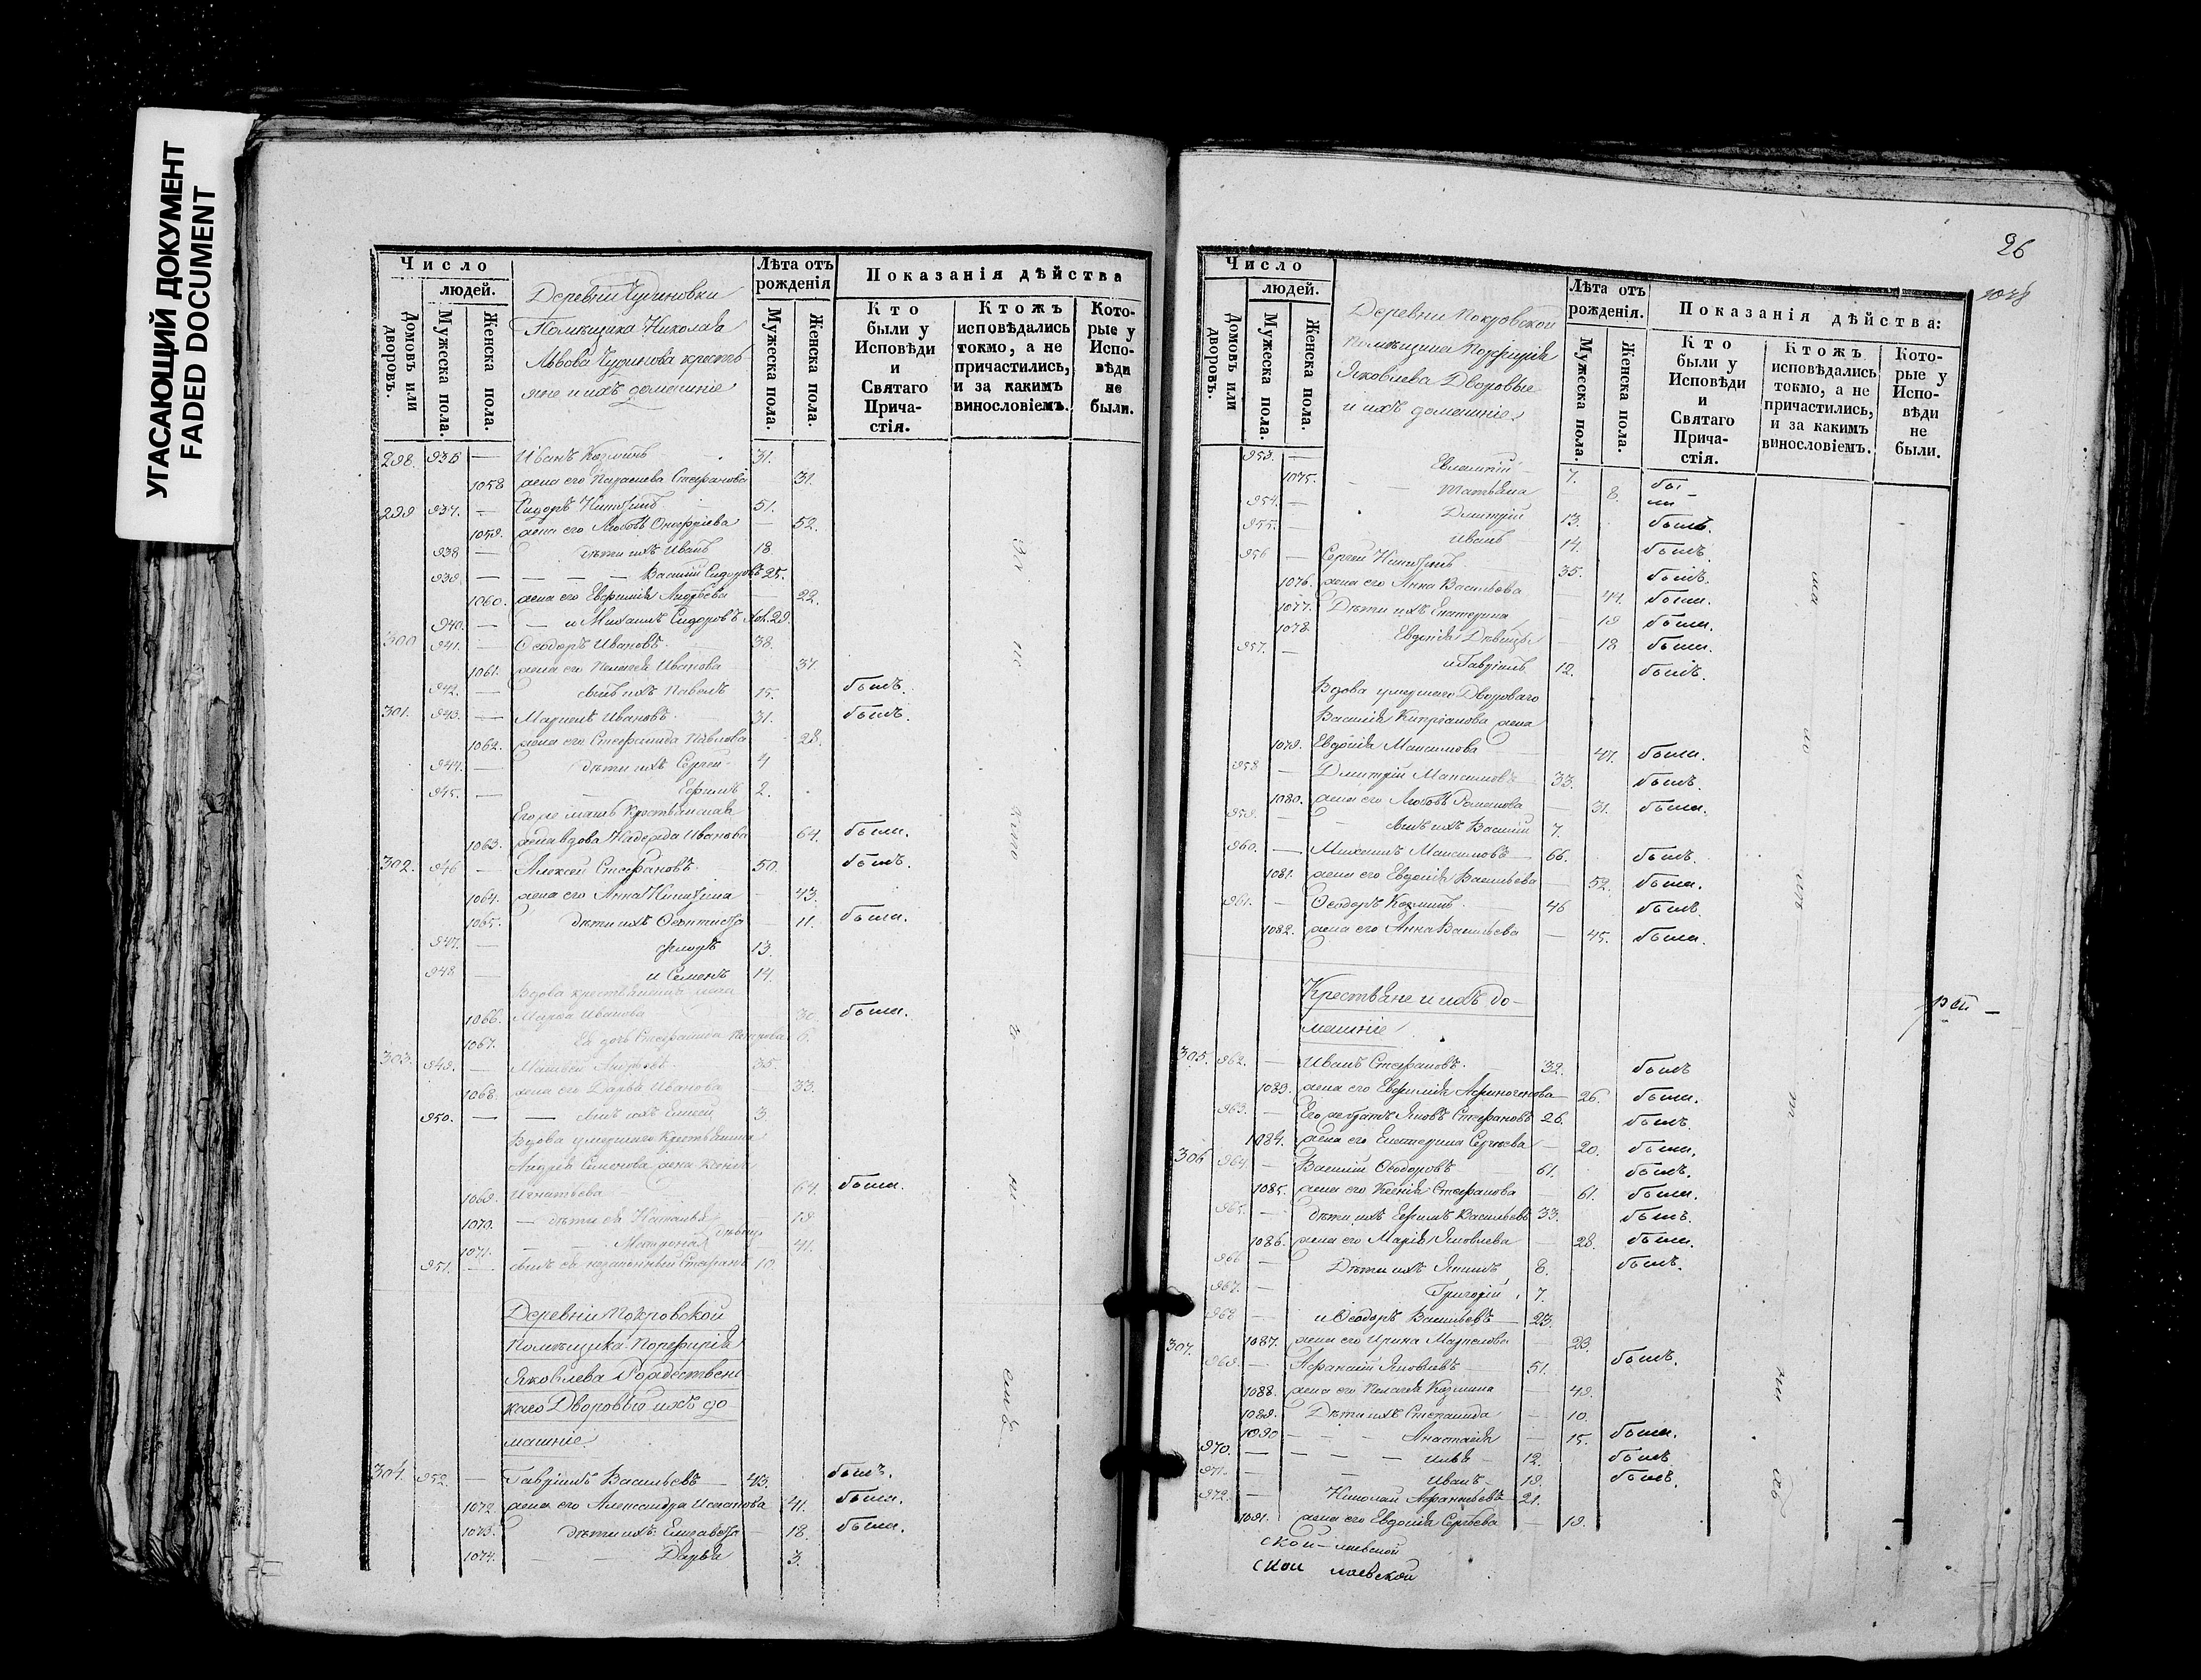 УГАСАЮЩИЙ ДОКУМЕНТ
FADED DOCUMENT
Число
людей.
Домовъ или дворовъ.
Мужеска пола.
Женска пола.
Деревни Чудиновки
Помѣщика Николая
Львова Чудинова кресть
яне и ихъ домашніе
Лѣта отъ рожденія
Мужеска пола.
Женска пола.
Показанія дѣйства
Кто были у Исповѣди и Святаго Причастія.
Ктожъ исповѣдались токмо, а не причастились, и за какимъ винословіемъ.
Которые у Исповѣди не были.
298. 936 — Иванъ Козминъ 31.
1058 жена его Параскева Стефанова 31.
299 937. — Сидоръ Никитинъ 51.
1059. жена его Любовь Онуфріева — 52.
938 — дѣти ихъ Иванъ 18.
939. — — — Василій Сидоровъ 25.
1060. жена его Евфимія Андреева — 22.
940. — — и Михаилъ Сидоровъ 29.
300 941. — Ѳеодоръ Ивановъ 38.
1061. жена его Пелагея Иванова 37.
942. — сынъ ихъ Павелъ 15. былъ.
301. 943. — Маркелъ Ивановъ 31. былъ.
1062. жена его Стефанида Павлова 28.
944. — дѣти ихъ Сергей 4
945. — Ефимъ 2.
Его же мать Крестьянская
1063. жена вдова Надежда Иванова 64. была.
302. 946 — Алексей Стефановъ 50. былъ.
1064. жена его Анна Никитина — 43.
1065. дѣти ихъ Ѳеоктиста — 11. была.
947. — Флоръ 13.
948 — и Семенъ 14.
Вдова крестьянская жена
1066. Марка Иванова 30 была.
1067. Ея дочь Стефанида Петрова 6.
303. 949. — Матвей Андреевъ 35.
1068. жена его Дарья Иванова — 33.
950. — — сынъ ихъ Елисей 3
Вдова умершаго Крестьянина
Андрея Семенова жена Ксенія
1069. Игнатьева 64. была.
1070. — дѣти ея Наталья 19
дѣвицы
1071. — Матрона 41.
951. — сынъ ея незаконный Стефанъ 10
Деревни Покровской
Помѣщика Порфирія
Яковлева Рождествен
каго Дворовые ихъ до
машніе.
304. 952. — Гавріилъ Васильевъ — 43. былъ.
1072. жена его Александра 41. была.
1073. дѣти ихъ Елисавета — 18. была.
1074. — — Дарья 3.
26
1048
Число
людей.
Домовъ или дворовъ.
Мужеска пола.
Женска пола.
Деревни Покровской
Помѣщика Порфирія
Яковлева Дворовые
и ихъ домашніе.
Лѣта отъ рожденія.
Мужеска пола.
Женска пола.
Показанія дѣйства:
Кто были у Исповѣди и Святаго Причастія.
Ктожъ исповѣдались токмо, а не причастились, и за какимъ винословіемъ.
Которые у Исповѣди не были.
953. — Евлампій 7.
1075. — — Татьяна 8. бы-
ли —
954. — Дмитрій 13. былъ.
955. — Иванъ — 14. былъ.
956 — Сергей Никитинъ 35. былъ.
1076. жена его Анна Васильева — 44. была.
1077. Дѣти ихъ Екатерина — 19 была.
1078. Евдокія Дѣвицы — 18 была.
957. — и Гавріилъ 12. былъ.
Вдова умершаго Двороваго
Василія Кипріанова жена
1079. Евдокія Максимова 47. была.
958 — Дмитрій Максимовъ 33. былъ.
1080. жена его Любовь Романова — 31. была.
959. — — сынъ ихъ Василій 7.
960. — Михаилъ Максимовъ — 66. былъ.
1081. жена его Евдокія Васильева — 52. была.
961. — Ѳеодоръ Козминъ 46 былъ.
1082. жена его Анна Васильева — 45. была.
Крестьяне и ихъ до-
машніе
305. 962. — Иванъ Стефановъ. 32. былъ
1083. жена его Евфимія Афиногенова — 26. была.
963. — Его же братъ Яковъ Стефановъ 26. былъ.
1084. жена его Екатерина Сергеева — 20. была.
306 964. — Василій Ѳеодоровъ 61. былъ.
1085. жена его Ксенія Стефанова — 61. была.
965. — дѣти ихъ Ефимъ Васильевъ 33. былъ.
1086. жена его Марія Яковлева — 28. была.
966 — Дѣти ихъ Якимъ 8. былъ.
967. — Григорій 7.
968 — и Ѳеодоръ Васильевъ — 23.
1087. жена его Ирина Маркелова — 23.
307. 969. — Афанасій Яковлевъ — 51. былъ.
1088. жена его Пелагея Козмина — 49.
1089. Дѣти ихъ Степанида — 10.
1090 — — Анастасія — 15. была.
970. — — — Илья — 12. былъ.
971. — — Иванъ — 19. былъ.
972. — Николай Афанасьевъ — 21.
1091. жена его Евдокія Сергеева — 19.
ской
ской